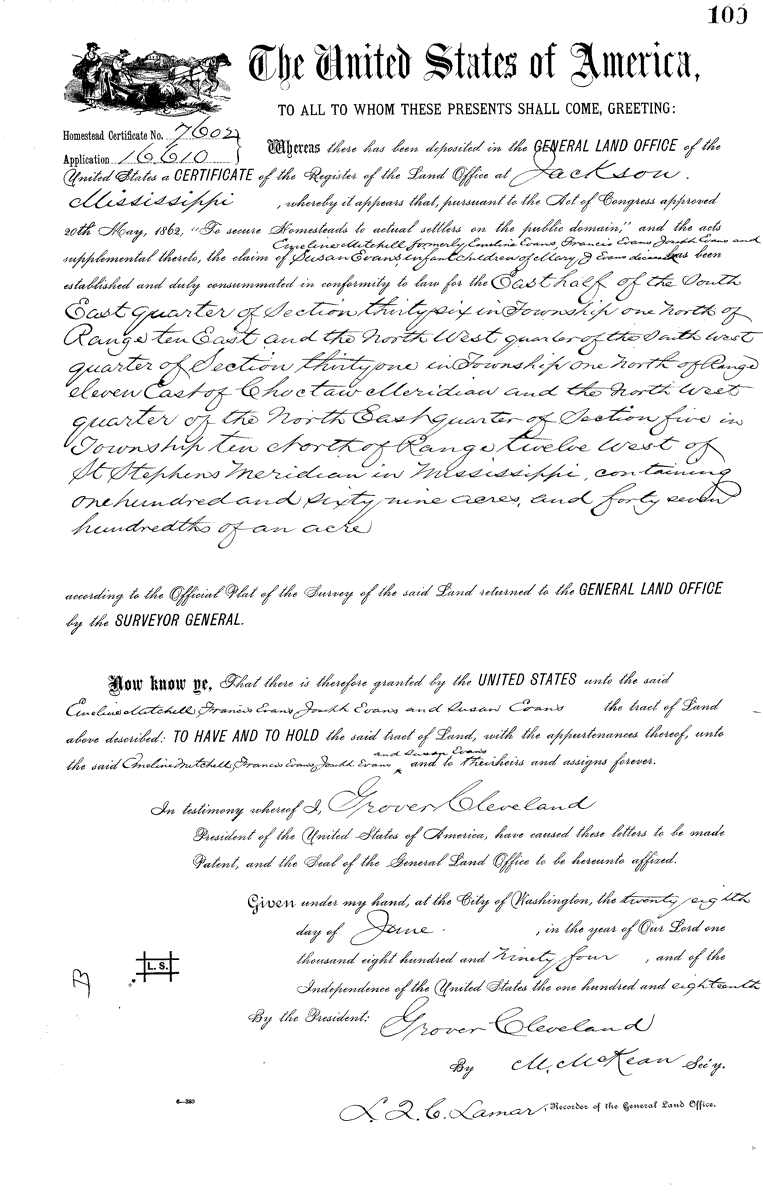 100
The United States of America,
TO ALL TO WHOM THESE PRESENTS SHALL COME, GREETING:
Homestead Certificate No. 7602
Application 16610
Whereas there has been deposited in the GENERAL LAND OFFICE of the
United States a CERTIFICATE of the Register of the Land Office at Jackson.
Mississippi , whereby it appears that, pursuant to the Act of Congress approved
20th May, 1862, "To secure Homesteads to actual settlers on the public domain," and the acts
Emeline Mitchell formerly Emeline Evans, Francis Evans Joseph Evans and
supplemental thereto, the claim of Susan Evans, infant children of Mary J Evans deceased has been
established and duly consummated in conformity to law for the East half of the South
East quarter of Section thirty six in Township one North of
Range ten East and the North West quarter of the South West
quarter of Section thirty one in Township one North of Range
eleven East of Choctaw Meridian and the North West
quarter of the North East quarter of Section five in
Township ten North of Range twelve West of
St Stephens Meridian in Mississippi, containing
one hundred and sixty nine acres, and forty seven
hundredths of an acre
according to the Official Plat of the Survey of the said Land returned to the GENERAL LAND OFFICE
by the SURVEYOR GENERAL.
Now know ye, That there is therefore granted by the UNITED STATES unto the said
Emeline Mitchell, Francis Evans, Joseph Evans and Susan Evans the tract of Land
above described: TO HAVE AND TO HOLD the said tract of Land, with the appurtenances thereof, unto
and Susan Evans
the said Emeline Mitchell, Francis Evans, Joseph Evans and to their heirs and assigns forever.
In testimony whereof I, Grover Cleveland
President of the United States of America, have caused these letters to be made
Patent, and the Seal of the General Land Office to be hereunto affixed.
Given under my hand, at the City of Washington, the twenty eighth
day of June , in the year of Our Lord one
thousand eight hundred and ninety four , and of the
Independence of the United States the one hundred and eighteenth
L. S.
B
By the President: Grover Cleveland
By M. McKean Sec'y.
6—383
L. Q. C. Lamar, Recorder of the General Land Office.